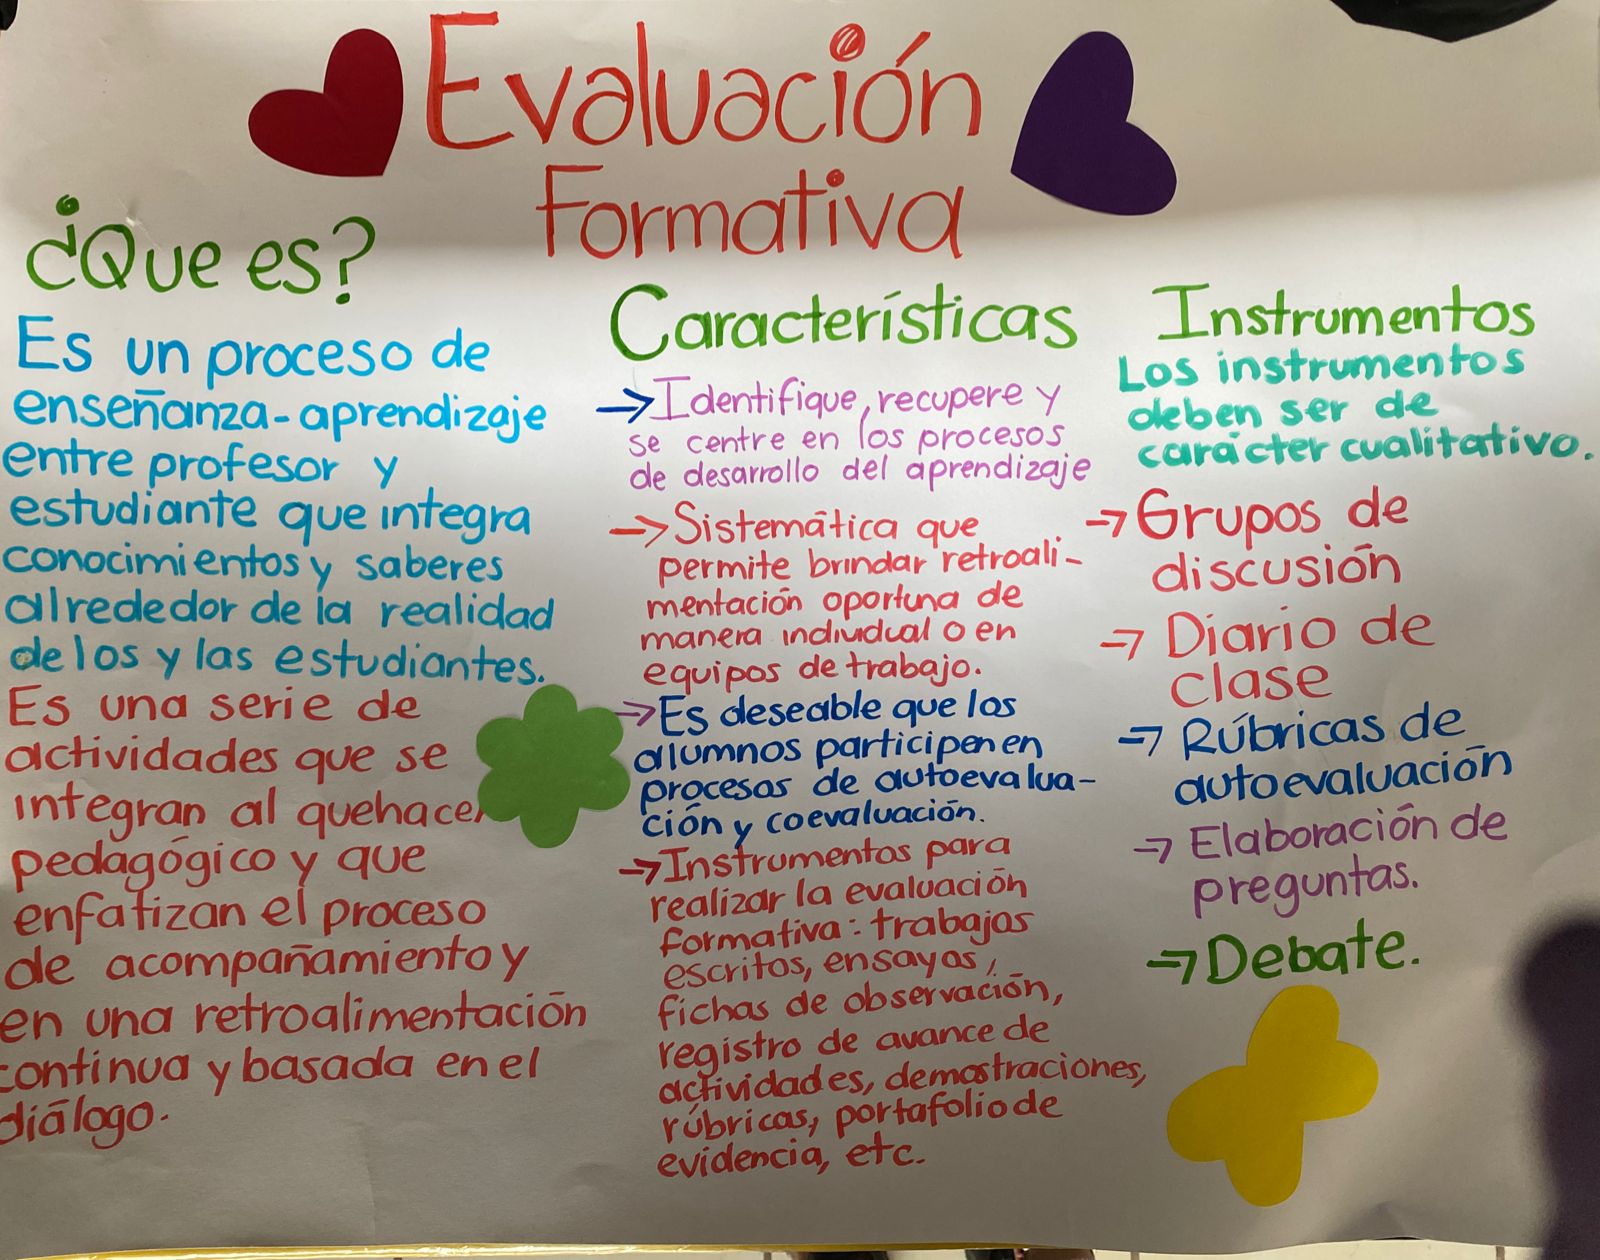 Evaluación
Formativa
¿Que es?
Es un proceso de
enseñanza-aprendizaje
entre profesor y
estudiante que integra
conocimientos y saberes
alrededor de la realidad
de los y las estudiantes.
Es una serie de
actividades que se
integran al quehacer
pedagógico y que
enfatizan el proceso
de acompañamiento y
en una retroalimentación
continua y basada en el
diálogo.
Características
→ Identifique, recupere y
se centre en los procesos
de desarrollo del aprendizaje
→ Sistemática que
permite brindar retroali-
mentación oportuna de
manera individual o en
equipos de trabajo.
→ Es deseable que los
alumnos participen en
procesos de autoevalua-
ción y coevaluación.
→ Instrumentos para
realizar la evaluación
formativa: trabajos
escritos, ensayos,
fichas de observación,
registro de avance de
actividades, demostraciones,
rúbricas, portafolio de
evidencia, etc.
Instrumentos
Los instrumentos
deben ser de
carácter cualitativo.
→ Grupos de
discusión
→ Diario de
clase
→ Rúbricas de
autoevaluación
→ Elaboración de
preguntas.
→ Debate.